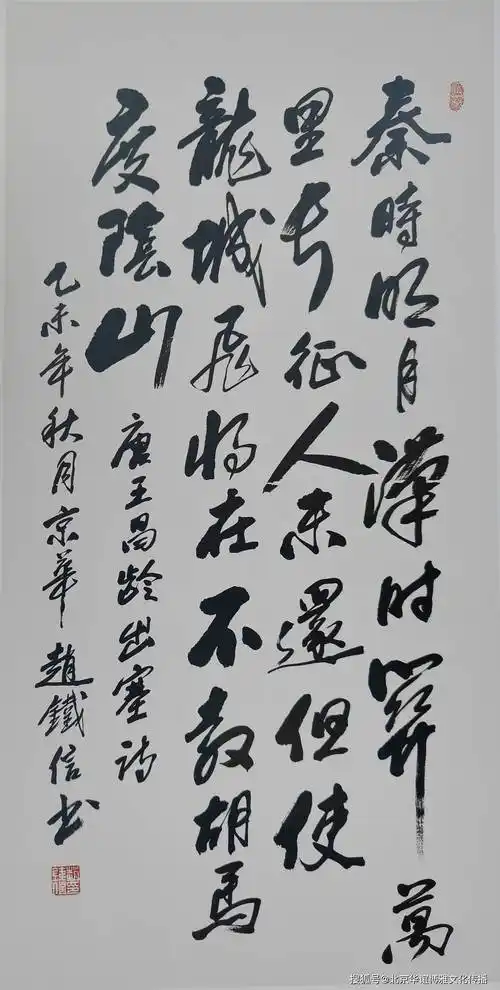 秦時明月漢时関萬
里长征人未還但使
龍城飛将在不教胡馬
度陰山
唐王昌龄出塞诗
乙未年秋月京華趙鐵信书
搜狐号@北京华谊博雅文化传播